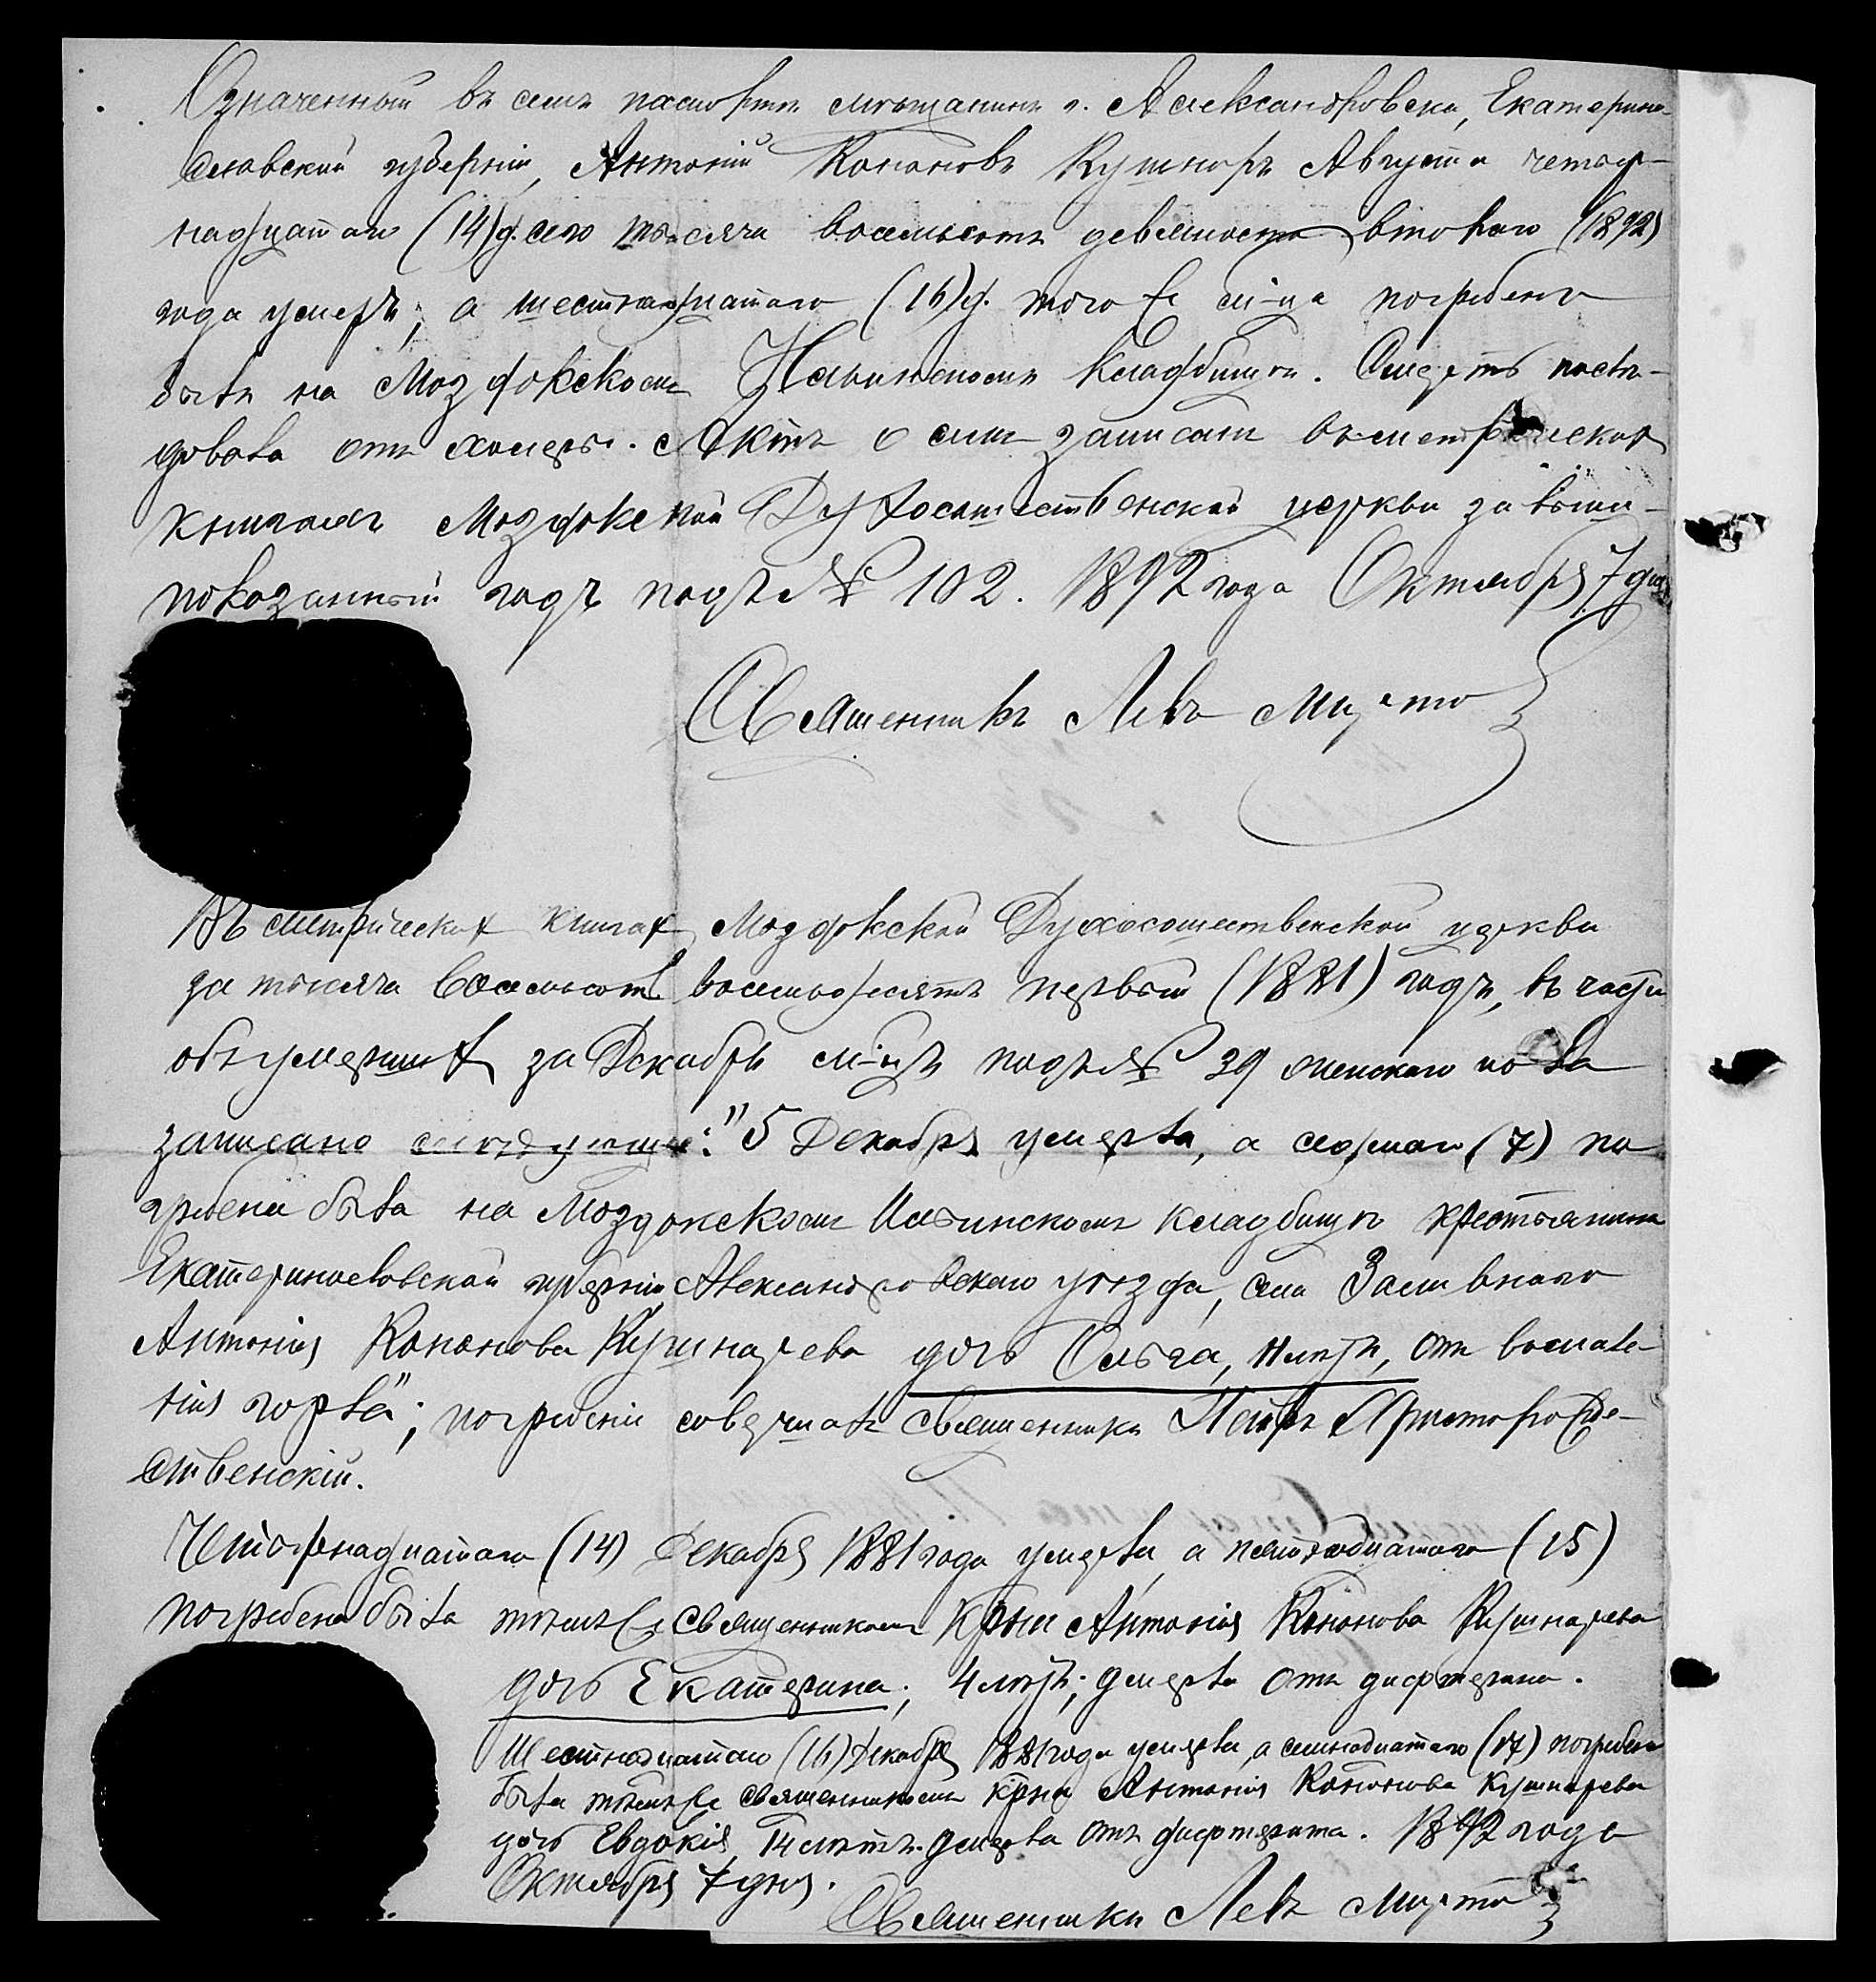 Означенный въ семъ паспортѣ мѣщанинъ г. Александровска, Екатерино-
славской губерніи, Антоній Кононовъ Кушнорь Августа четыр-
надцатаго (14) д. сего тысяча восемьсотъ девяносто втораго (1892)
года умеръ, а шестнадцатаго (16) д. того же м-ца погребенъ
былъ на Моздокскомъ кладбищѣ. Смерть послѣ-
довала отъ холеры. Актъ о семъ записанъ въ метрическихъ
книгахъ Моздокской Духосошественской церкви за выше-
показанный годъ подъ № 102. 1892 года Октября 7 дня
Священникъ Левъ
Въ метрическихъ книгахъ Моздокской Духосошественской церкви
за тысяча восемьсотъ восемьдесятъ первый (1881) годъ, въ части
объ умершихъ за Декабрь м-цъ подъ № 39 женскаго пола
записано слѣдующее: "5 Декабря умерла, а седьмаго (7) по
гребена была на Моздокскомъ Ильинскомъ кладбищѣ крестьянина
Екатеринославской губерніи Александровскаго уѣзда, села Заливнаго
Антонія Кононова Кушнарева дочь Ольга, 11 лѣтъ, отъ воспале-
нія горла"; погребеніе совершалъ священникъ Петръ Христорожде-
ственскій.
Четырнадцатаго (14) Декабря 1881 года умерла, а пятнадцатаго (15)
погребена была тѣмъ же священникомъ крнъ Антонія Кононова Кушнарева
дочь Екатерина, 4 лѣтъ; умерла отъ дифтерита.
Шестнадцатаго (16) Декабря 1881 года умерла, а семнадцатаго (17) погребена
была тѣмъ же священникомъ крна Антонія Кононова Кушнарева
дочь Евдокія, 14 лѣтъ. Умерла отъ дифтерита. 1892 года
Октября 7 дня.
Священникъ Левъ